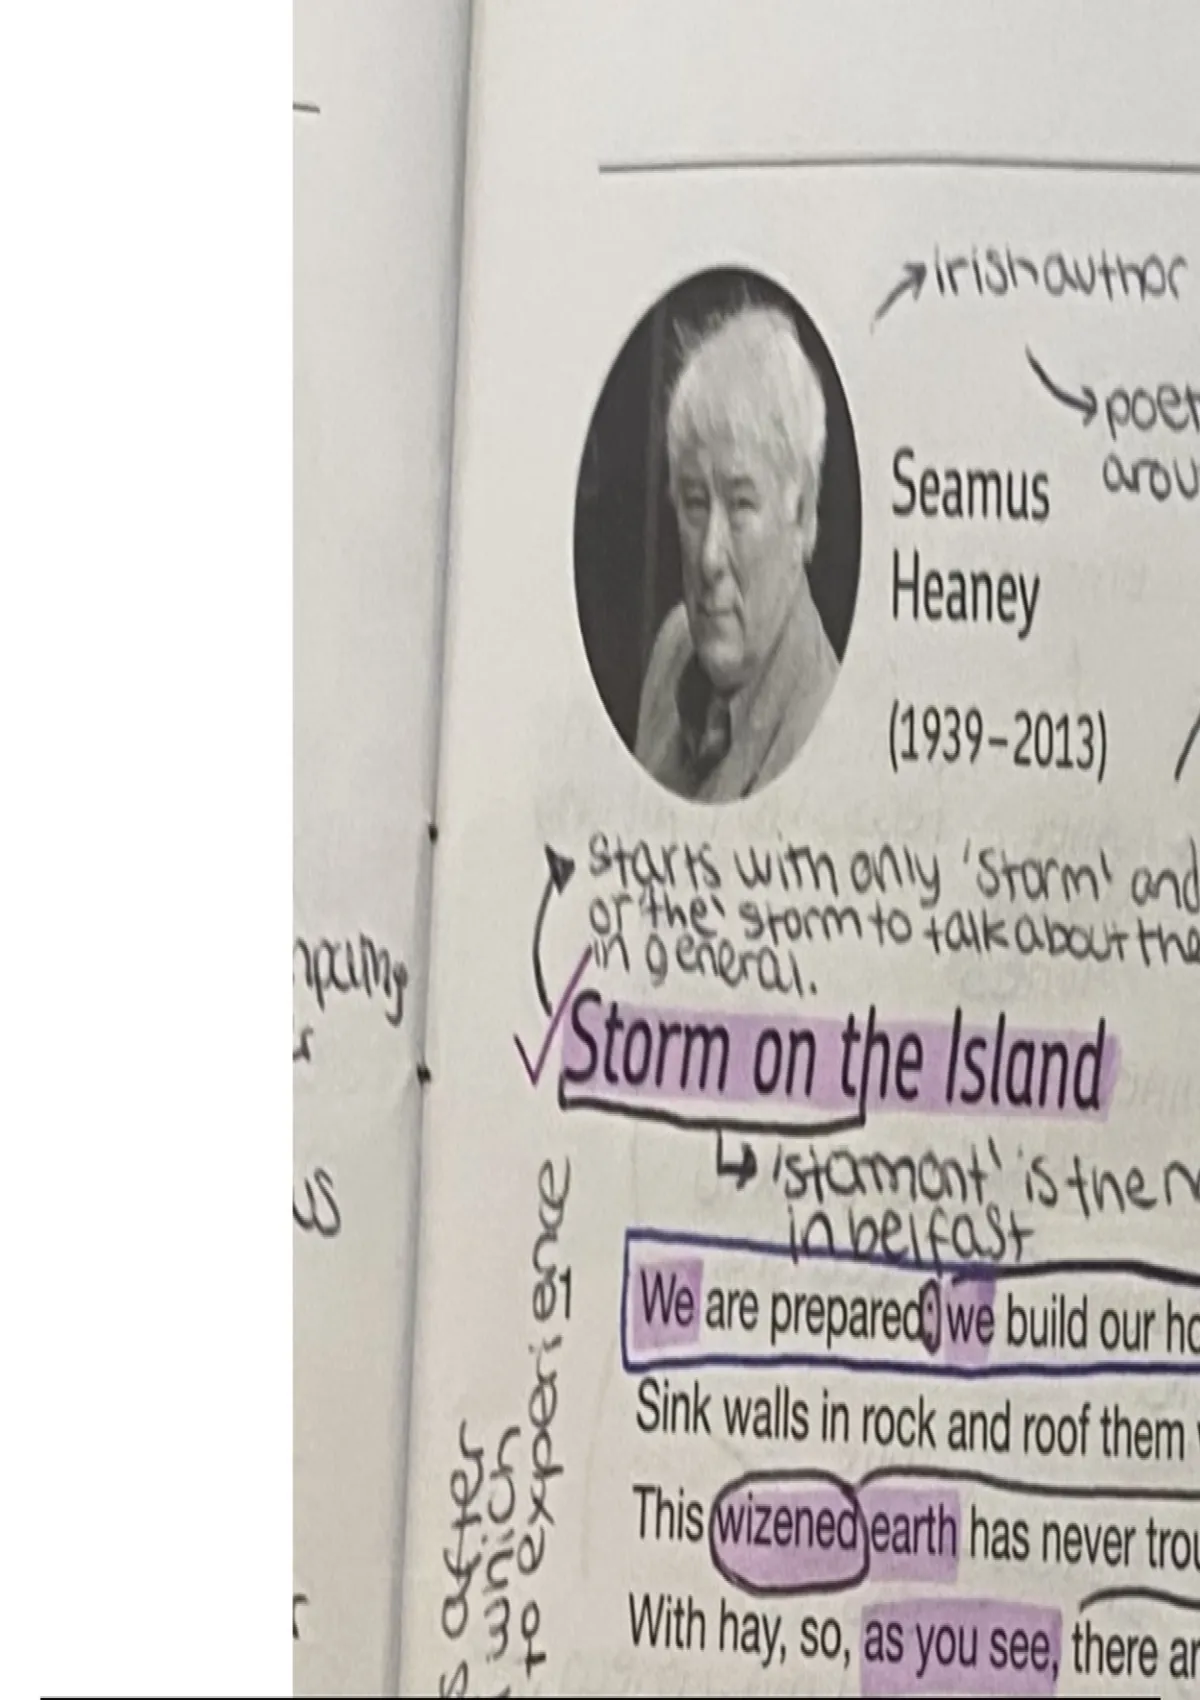 irish author
poet
arou
Seamus
Heaney
(1939–2013)
starts with only 'storm' and
or 'the' storm to talk about the
in general.
Storm on the Island
'stamont' is the n
in belfast
We are prepared: we build our ho
Sink walls in rock and roof them
This wizened earth has never trou
With hay, so, as you see, there ar
after
which
to experience